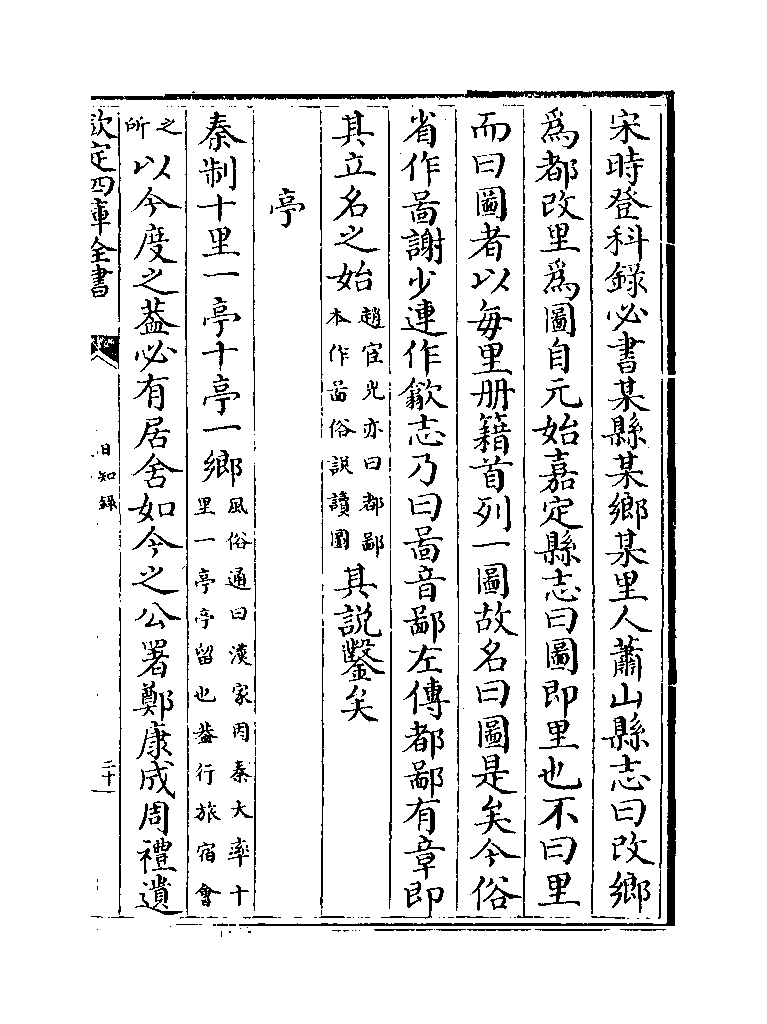 宋時登科錄必書某縣某鄉某里人蕭山縣志曰改鄉
爲都改里爲圖自元始嘉定縣志曰圖即里也不曰里
而曰圖者以每里册籍首列一圖故名曰圖是矣今俗
省作啚謝少連作歙志乃曰啚音鄙左傳都鄙有章即
其立名之始趙宧光亦曰都鄙本作啚俗誤讀圖其説鑿矣
亭
秦制十里一亭十亭一鄉風俗通曰漢家因秦大率十里一亭亭留也葢行旅宿會
之所以今度之葢必有居舍如今之公署鄭康成周禮遺
欽定四庫全書
日知錄
二十一